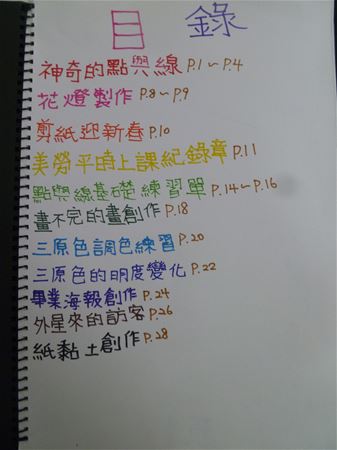 目錄
神奇的點與線 P.1～P.4
花燈製作 P.8～P.9
剪紙迎新春 P.10
美勞平時上課紀錄章 P.11
點與線基礎練習單 P.14～P.16
畫不完的畫創作 P.18
三原色調色練習 P.20
三原色的明度變化 P.22
畢業海報創作 P.24
外星來的訪客 P.26
紙黏土創作 P.28